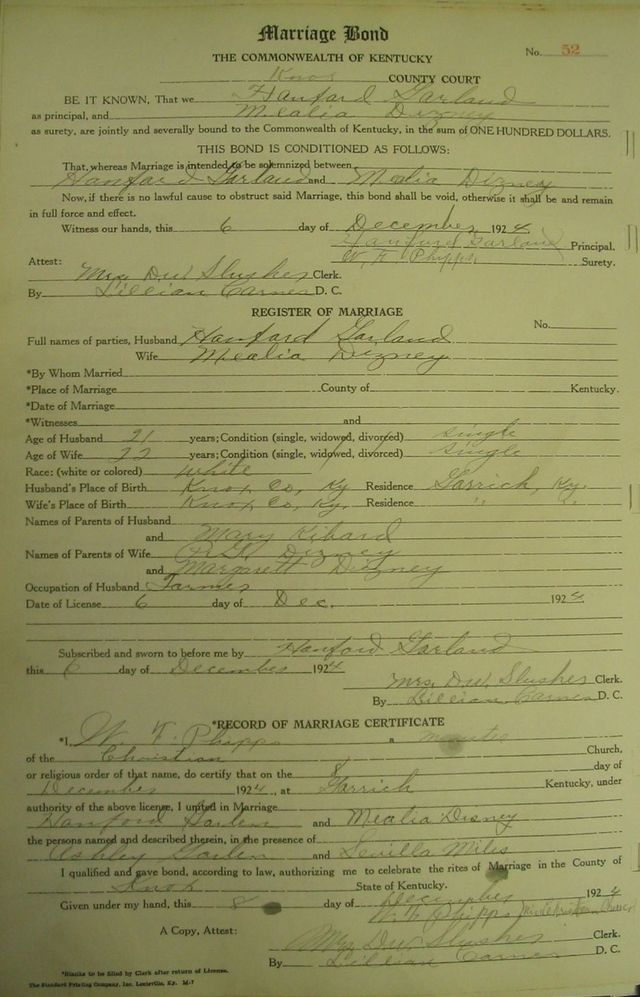 Marriage Bond
No. 52
THE COMMONWEALTH OF KENTUCKY
Knox COUNTY COURT
BE IT KNOWN, That we Hanford Garland
as principal, and Mealia Dizney
as surety, are jointly and severally bound to the Commonwealth of Kentucky, in the sum of ONE HUNDRED DOLLARS.
THIS BOND IS CONDITIONED AS FOLLOWS:
That, whereas Marriage is intended to be solemnized between
Hanford Garland and Mealia Dizney
Now, if there is no lawful cause to obstruct said Marriage, this bond shall be void, otherwise it shall be and remain
in full force and effect.
Witness our hands, this 6 day of December 1924
Hanford Garland Principal.
W. F. Phipps Surety.
Attest:
Mrs D.W. Slusher Clerk.
By Lillian Carnes D. C.
REGISTER OF MARRIAGE
No.
Full names of parties, Husband Hanford Garland
Wife Mealia Dizney
*By Whom Married
*Place of Marriage County of Kentucky.
*Date of Marriage
*Witnesses and
Age of Husband 21 years; Condition (single, widowed, divorced) single
Age of Wife 22 years; Condition (single, widowed, divorced) single
Race: (white or colored) white
Husband's Place of Birth Knox Co, Ky Residence Garrich, Ky.
Wife's Place of Birth Knox Co, Ky. Residence " "
Names of Parents of Husband
and Mary Hibard
Names of Parents of Wife Dizney
and Margarett Dizney
Occupation of Husband Farmer
Date of License 6 day of Dec. 1924
Subscribed and sworn to before me by Hanford Garland
this 6 day of December 1924
Mrs D.W. Slusher Clerk.
By Lillian Carnes D. C.
*RECORD OF MARRIAGE CERTIFICATE
*I, W. F. Phipps a
of the Christian Church,
or religious order of that name, do certify that on the 8 day of
December 1924, at Garrich Kentucky, under
authority of the above license, I united in Marriage
Hanford Garlen and Mealia Disney
the persons named and described therein, in the presence of
Ashley Garlen and Levilla Miles
I qualified and gave bond, according to law, authorizing me to celebrate the rites of Marriage in the County of
Knox State of Kentucky.
Given under my hand, this 8 day of December 1924
W. F. Phipps
A Copy, Attest:
Mrs D.W. Slusher Clerk.
By Lillian Carnes D. C.
*Blanks to be filled by Clerk after return of License.
The Standard Printing Company, Inc. Louisville, Ky. M-7